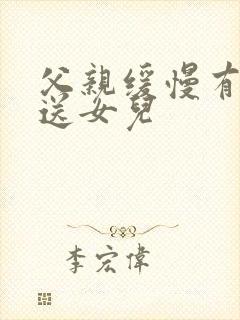 父親缓慢有
送女兒
李宏偉